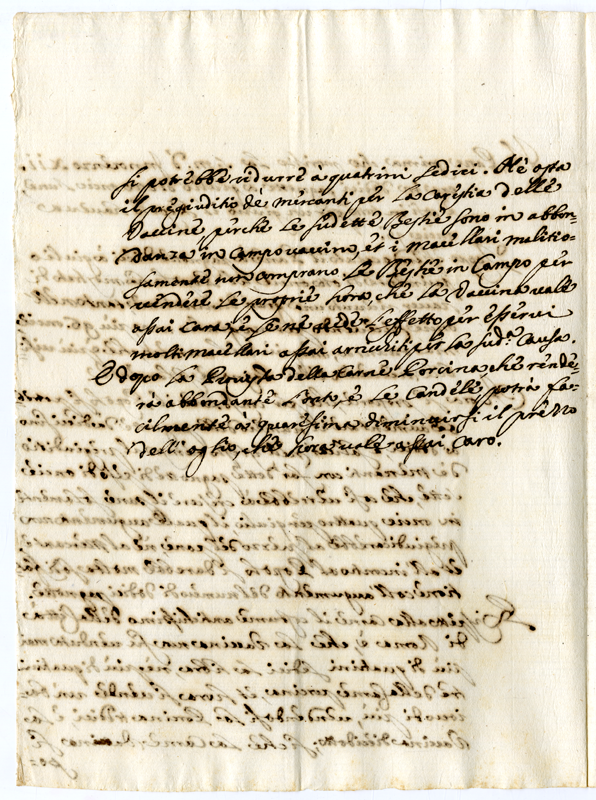 si potrebbe ridurre à quatrini sedici. Nè osta
il pregiuditio de mercanti per La Carestia delle
Vaccine, perche Le sudette Bestie sono in abbon-
danza in Campo vaccino, et i macellari malitio-
samente non comprano Le Bestie in Campo per
vendere Le proprie hora, che La Vaccina vale
assai cara, e se ne vede L'effetto per esservi
molti macellari assai arricchiti per La sud.ª Causa.
E dopo La Provista della Carne Porcina, che rende-
rà abbondante L'onto, e Le Candele, potrà fa-
cilmente à quaresima diminuirsi il prezzo
dell'oglio, che hora vale assai caro.